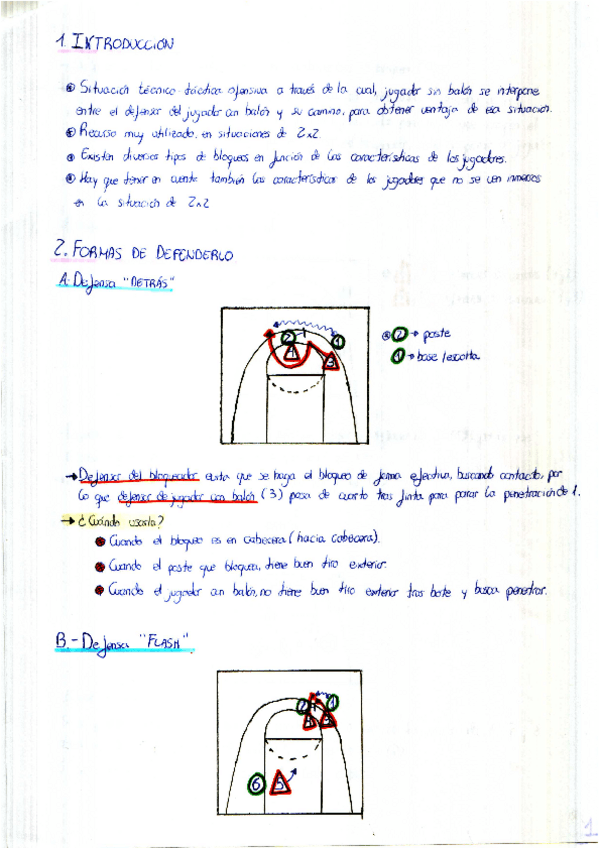 1. INTRODUCCIÓN
Situación técnico-táctica ofensiva a través de la cual, jugador sin balón se interpone
entre el defensor del jugador con balón y su camino, para obtener ventaja de esa situación.
Recurso muy utilizado en situaciones de 2x2
Existen diversos tipos de bloqueos en función de las características de los jugadores.
Hay que tener en cuenta también las características de los jugadores que no se ven inmersos
en la situación de 2x2
2. FORMAS DE DEFENDERLO
A. Defensa "DETRÁS"
2 1
4 3
2 → poste
1 → base/escolta
→ Defensor del bloqueador evita que se haga el bloqueo de forma efectiva, buscando contacto, por
lo que defensor de jugador con balón (3) pasa de cuarto tras finta para parar la penetración de 1.
→ ¿Cuándo usarla?
Cuando el bloqueo es en cabecera (hacia cabecera).
Cuando el poste que bloquea, tiene buen tiro exterior.
Cuando el jugador con balón, no tiene buen tiro exterior tras bote y busca penetrar.
B.- Defensa "FLASH".
2 1
6 5
1